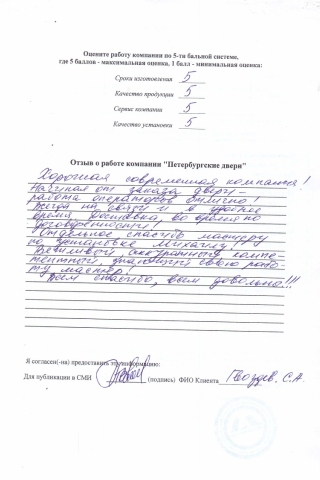 Оцените работу компании по 5-ти бальной системе,
где 5 баллов - максимальная оценка, 1 балл - минимальная оценка:
Сроки изготовления 5
Качество продукции 5
Сервис компании 5
Качество установки 5
Отзыв о работе компании "Петербургские двери"
Хорошая современная компания!
Начиная от заказа двери -
работа операторов отлично!
Всегда на связи и в удобное
время. Доставка во время по
договоренности!
Отдельное спасибо мастеру
по установке Михаилу!
Вежливый аккуратный компе-
тентный, знающий свою рабо-
ту мастер!
Всем спасибо, всем довольна!!!
Я согласен(-на) предоставить эту информацию:
Для публикации в СМИ (подпись) ФИО Клиента Гвоздев. С.А.